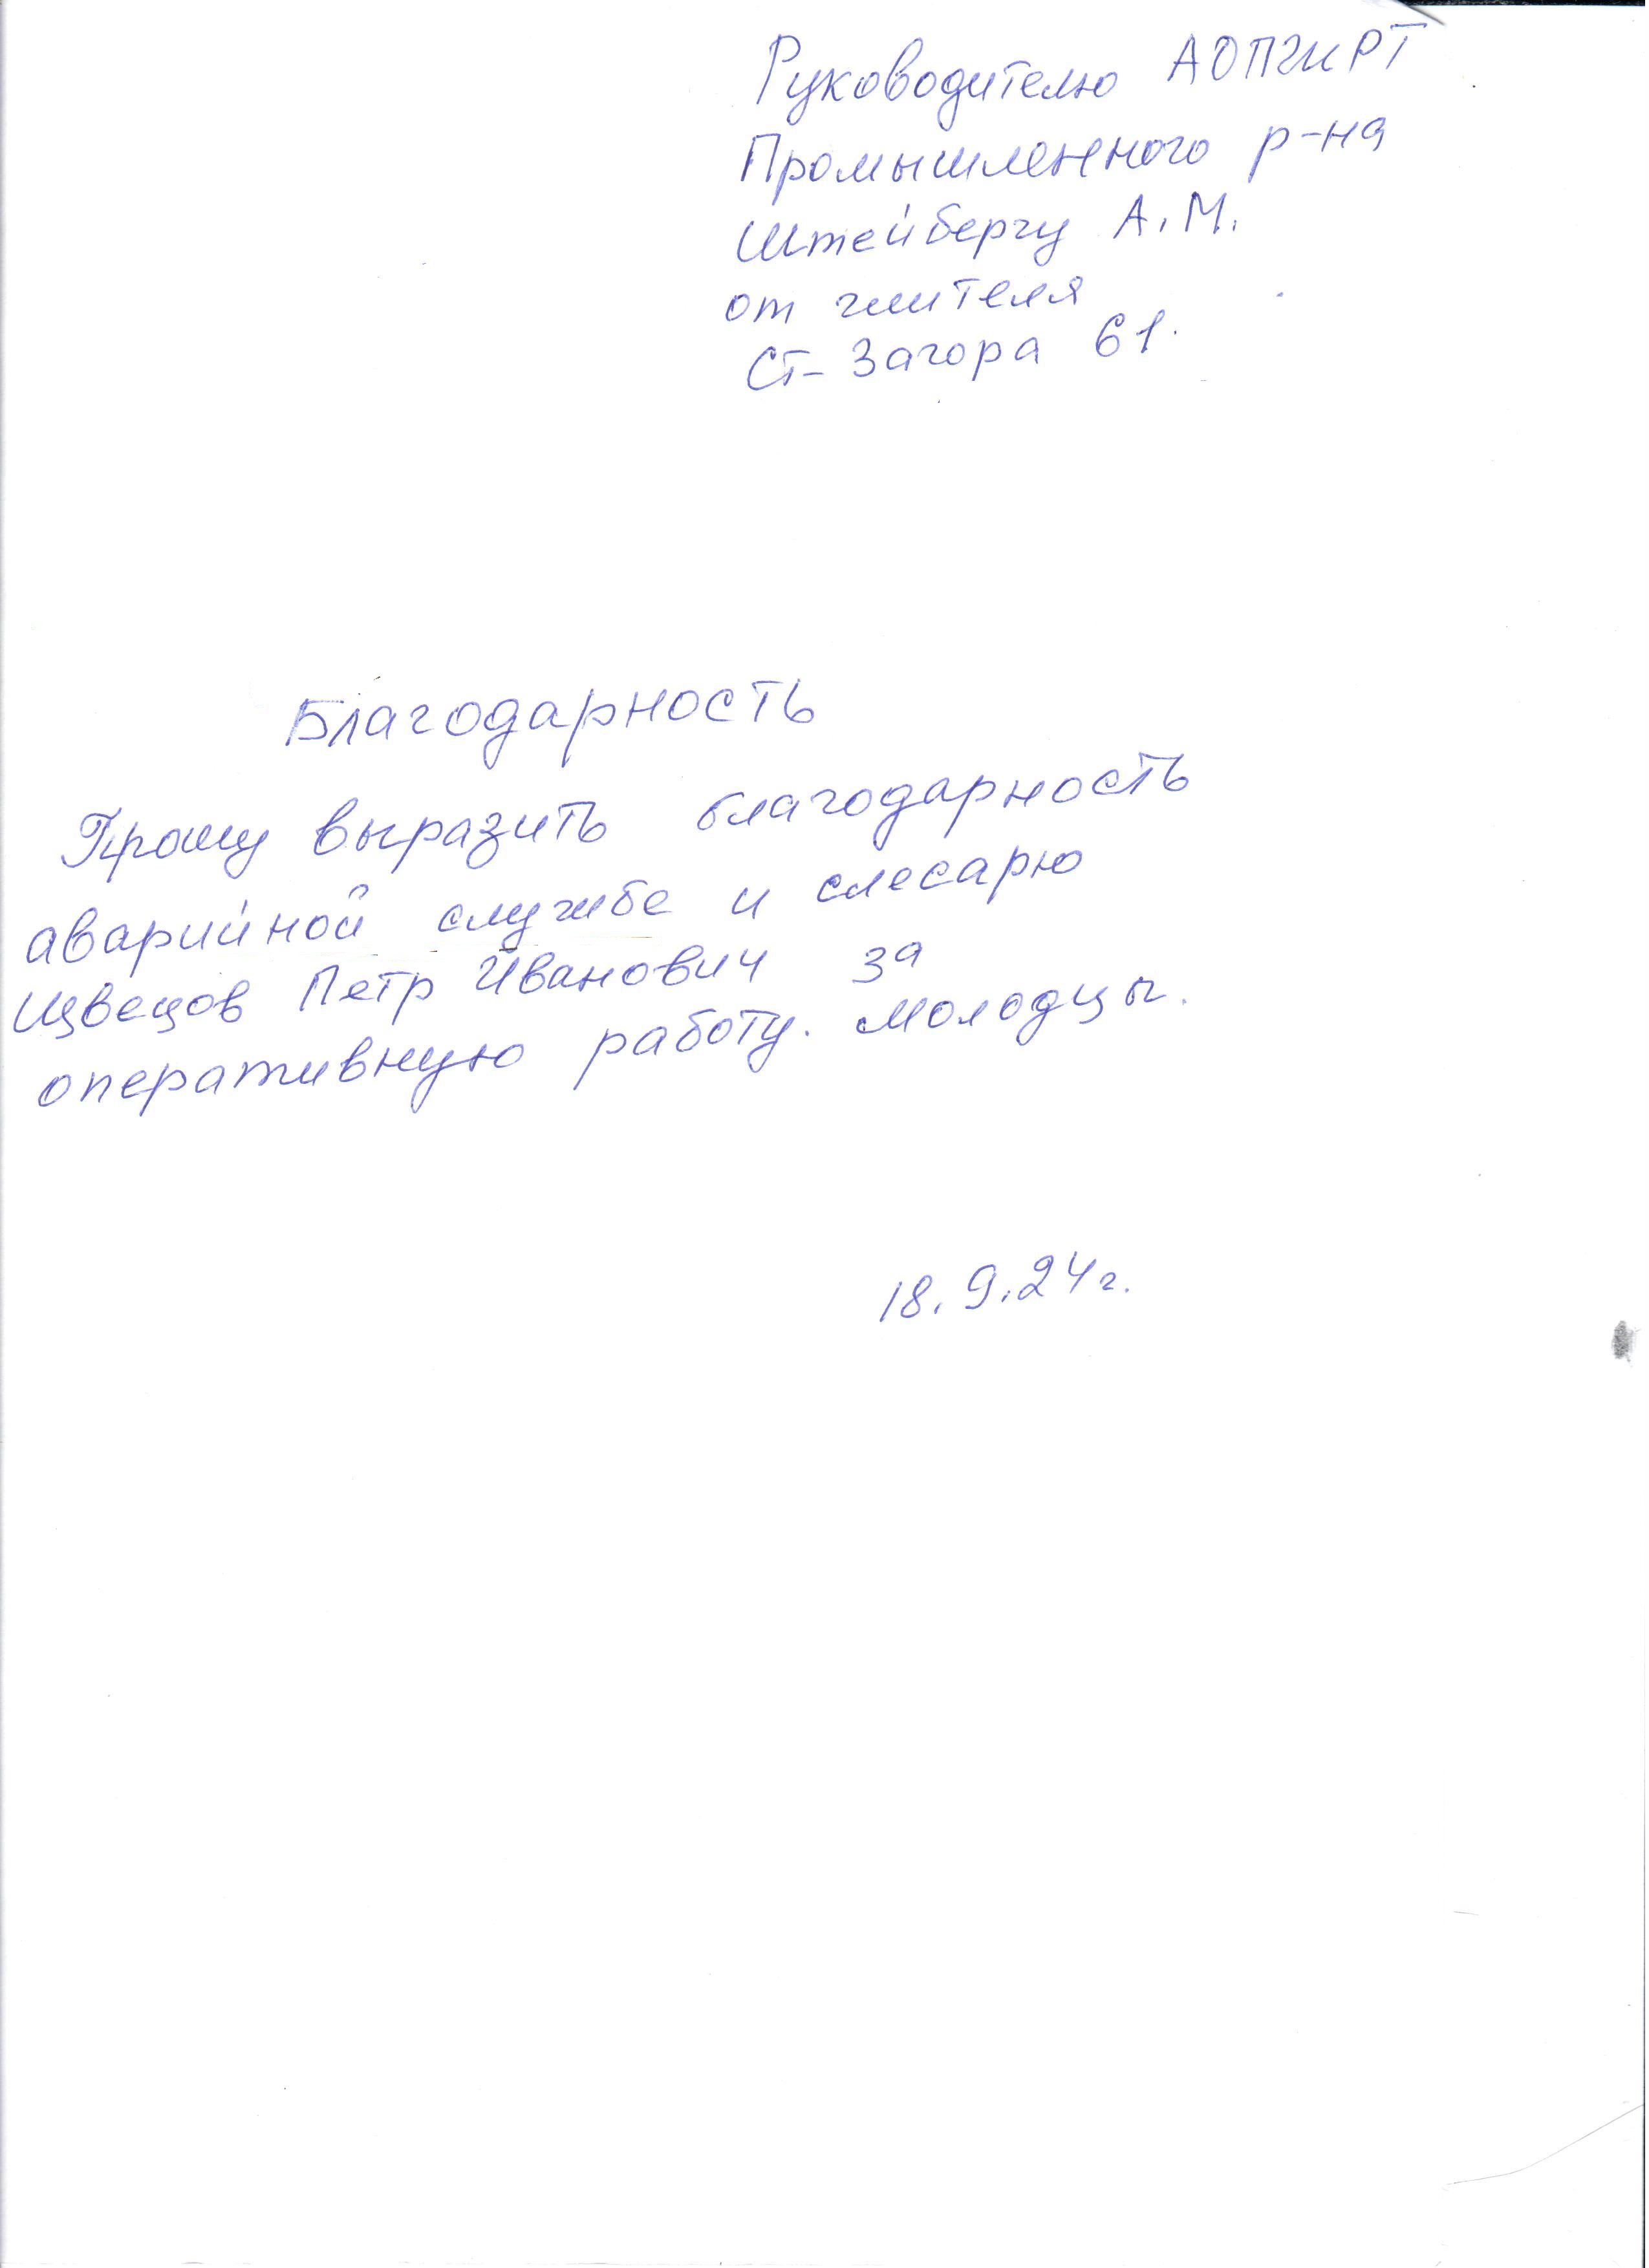 Руководителю АОПЖРТ
Промышленного р-на
Штейбергу А.М.
от жителя
Ст-Загора 61.
Благодарность
Прошу выразить благодарность
аварийной службе и слесарю
Петр Иванович за
оперативную работу. Молодцы.
18.9.24г.